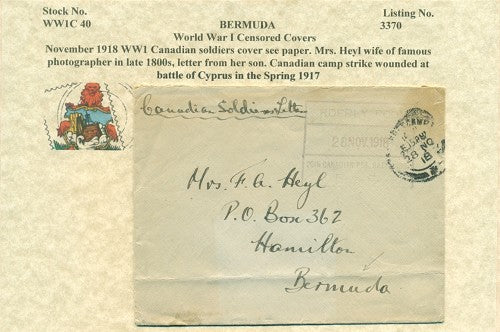 Stock No.
WW1C 40
BERMUDA
Listing No.
3370
World War I Censored Covers
November 1918 WW1 Canadian soldiers cover see paper. Mrs. Heyl wife of famous
photographer in late 1800s, letter from her son. Canadian camp strike wounded at
battle of Cyprus in the Spring 1917
Canadian Soldiers Letter
28 NOV. 1918
28 NO
18
Mrs. F. A. Heyl
P.O. Box 362
Hamilton
Bermuda